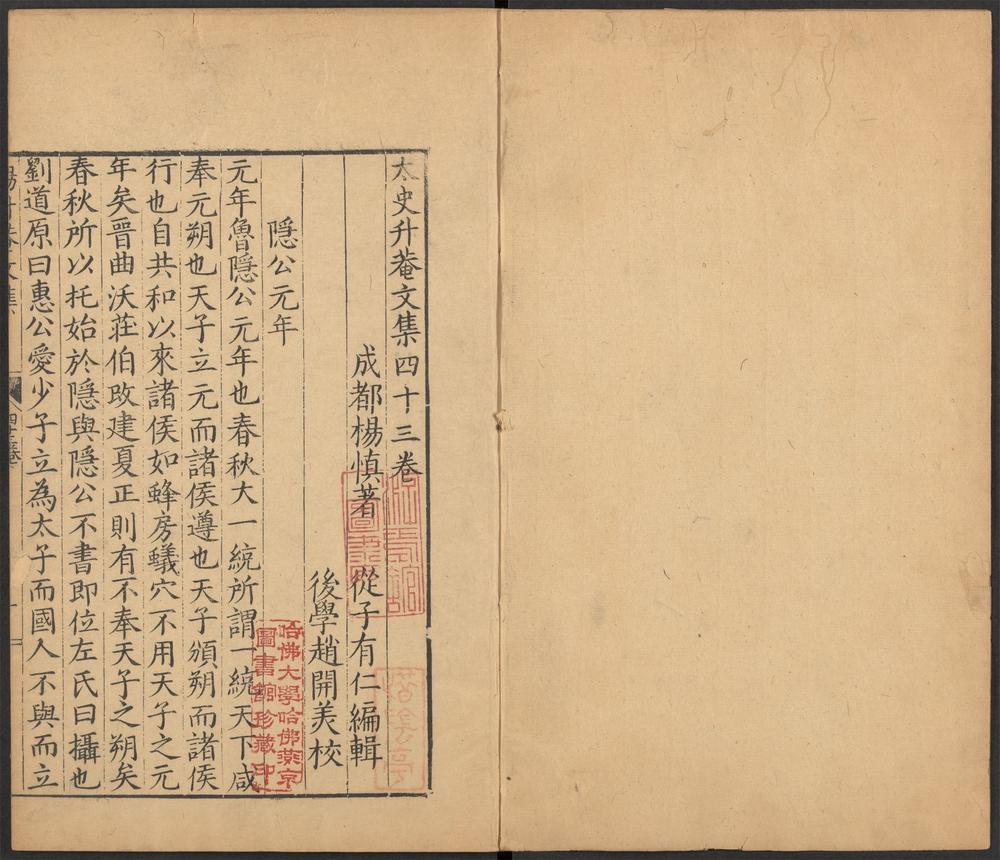 太史升菴文集四十三卷
成都楊慎著　從子有仁編輯
後學趙開美校
隱公元年
元年魯隱公元年也春秋大一統所謂一統天下咸
奉元朔也天子立元而諸侯遵也天子頒朔而諸侯
行也自共和以來諸侯如蜂房蟻穴不用天子之元
年矣晉曲沃莊伯改建夏正則有不奉天子之朔矣
春秋所以托始於隱與隱公不書即位左氏曰攝也
劉道原曰惠公愛少子立為太子而國人不與而立
哈佛大學哈佛燕京
圖書館珍藏印